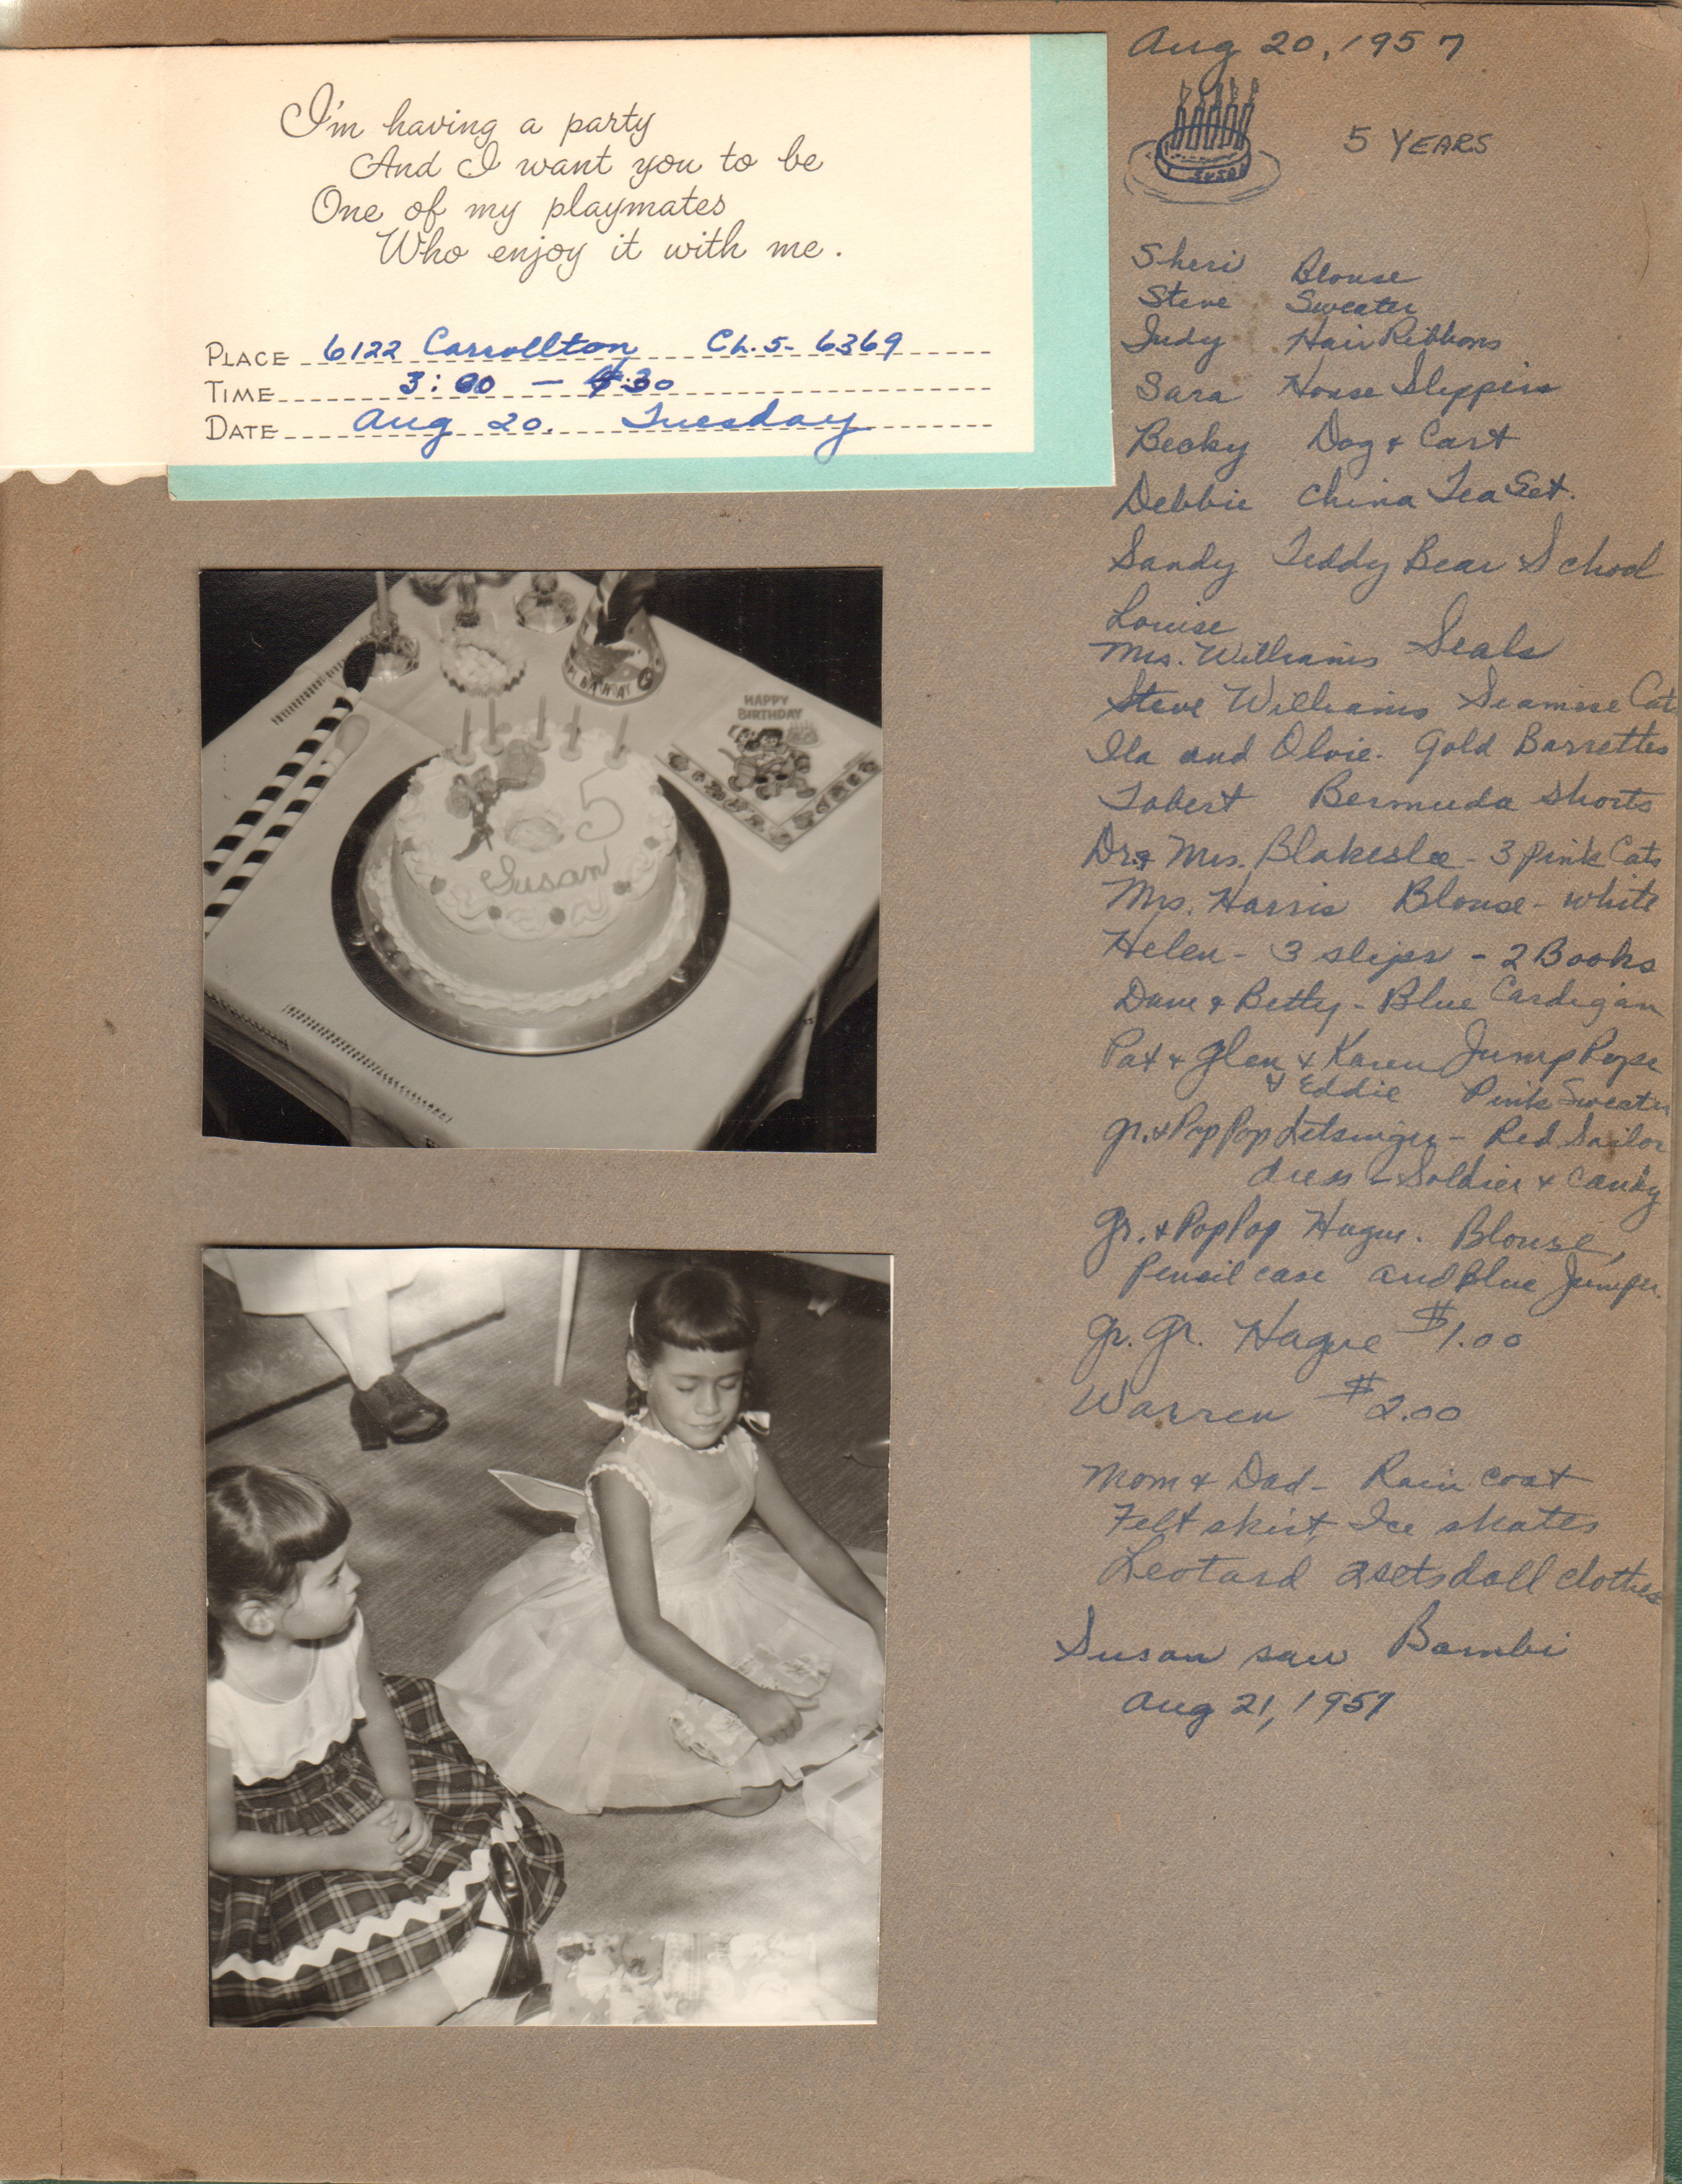 I'm having a party
And I want you to be
One of my playmates
Who enjoy it with me.
PLACE 6122 Carrollton Ch. 5- 6369
TIME 3:00 — 4:30
DATE Aug 20. Tuesday
HAPPY
BIRTHDAY
5
Susan
Aug 20, 1957
5 YEARS
SUSAN
Sheri Blouse
Steve Sweater
Judy Hair Ribbons
Sara House Slippers
Becky Dog & Cart
Debbie China Tea Set.
Sandy Teddy Bear School
Louise
Mrs. Williams Seals
Steve Williams Seamese Cats
Ila and Olvie. Gold Barrettes
Tobert Bermuda shorts
Dr & Mrs. Blakeslee - 3 pink Cats
Mrs. Harris Blouse - white
Helen - 3 slips - 2 Books
Dave & Betty - Blue Cardigan
Pat & Glen & Karen Jump Rope
& Eddie Pink Sweater
Gr. & PopPop - Red Sailor
dress - Soldier & Candy
Gr. & PopPop Hague. Blouse,
Pencil case and Blue Jumper.
Gr. Gr. Hague $1.00
Warren $2.00
Mom & Dad - Rain coat
Felt skirt, Ice skates
Leotard 2 sets doll clothes
Susan saw Bambi
Aug 21, 1957